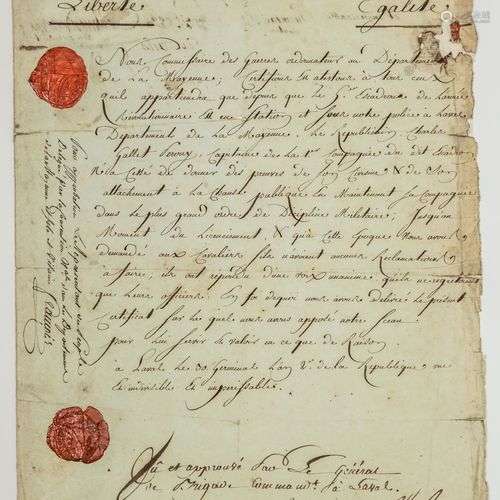 Liberté Egalité
Nous Commissaire des Guerres ordonateur au Departement
de La Mayenne; Certifions et attestons a tous ceux
quil appartiendra que depuis que le Sr. Escadron de Larmée
Revolutionnaire est en Station et sous notre police a Laval
Departement de La Mayenne, Le Republicain Charles
Gallet Capitaine de La 1re Compagnie du dit Escadron
N'a Cessé de donner des preuves de Son Civisme & de Son
attachement a la Chause publique En Maintenant Sa Compagnie
dans le plus grand ordre de Discipline Militaire; Jusqu'au
Moment du Licenciement & qu'a Cette Epoque Nous avons
demandé aux Cavaliers s'ils avaient aucunes Reclamations
a faire, ils ont repondu d'une voix unanime quils ne regrettaient
que leurs officiers. En foi dequoi nous avons delivré Le present
Certificat Sur lequel nous avons apposé notre Sceau
pour lui Servir & valoir en ce que de Raison.
a Laval le 30 Germinal L'an 2e de la Republique une
et indivisible et imperissable.
Vû et approuvé Par Le Général
de Brigade Commandt. à Laval